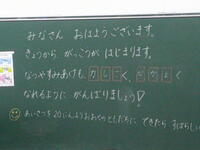 みなさん おはようございます。
きょうから がっこうが はじまります。
なつやすみあけも、かしこく、なかよく
なれるように がんばりましょう!
あいさつを20にんよりおおくのともだちに できたら すばらしい